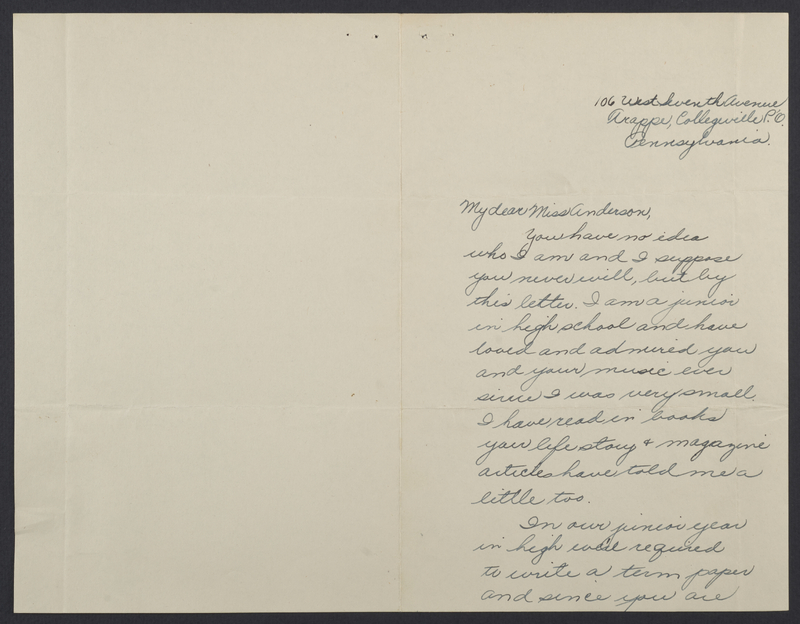 106 West Seventh Avenue
Arappe, Collegeville P.O.
Pennsylvania.
My dear Miss Anderson,
You have no idea
who I am and I suppose
you never will, but by
this letter. I am a junior
in high school and have
loved and admired you
and your music ever
since I was very small.
I have read in books
your life story & magazine
articles have told me a
little too.
In our junior year
in high we're required
to write a term paper
and since you are